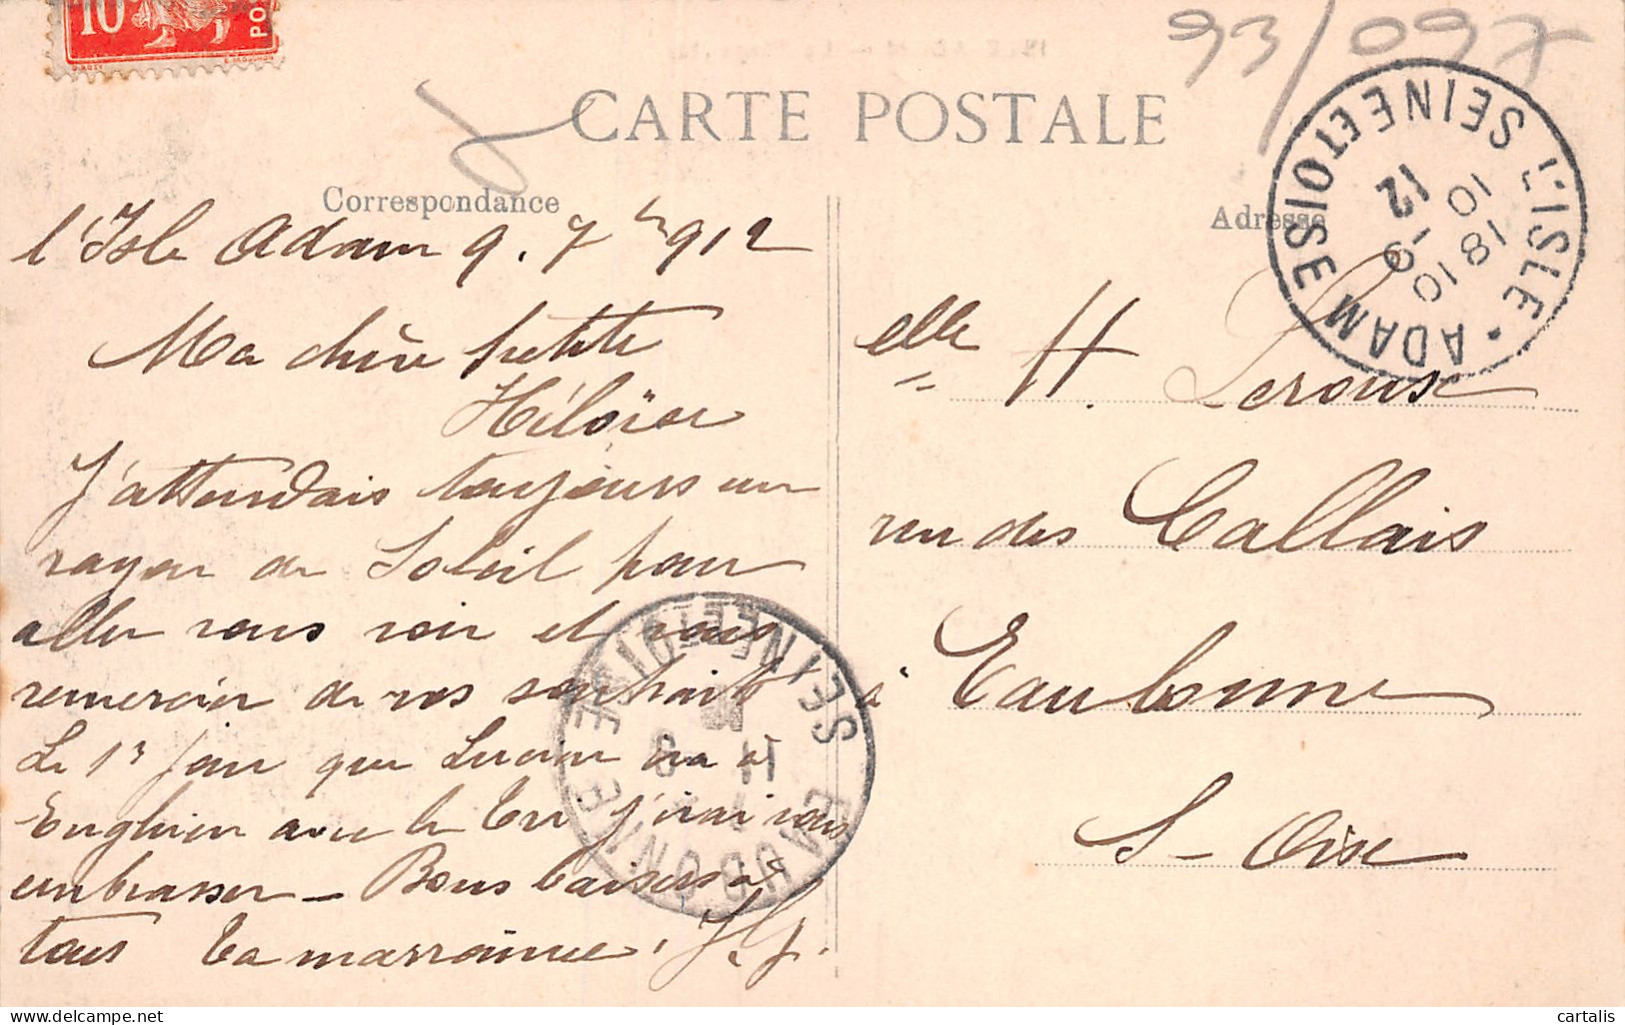 10
PO
E. MOUCHON
93/097
CARTE POSTALE
Correspondance
Adresse
L'ISLE • ADAM SEINE ET OISE
18 10
10 -9
12
l'Isle Adam 9. 7bre 912
Ma chère petite
Héloïse
J'attendais toujours un
rayon de Soleil pour
aller vous voir et vous
remercier de vos souhaits
Le 1er jour que Lucien ira à
Enghien avec le j'irai vous
embrasser – Bons baisers à
tous ta marraine. H. J.
elle H. Leroux
rue des Callais
à Eaubonne
S- Oise
EAUBONNE SEINE ET OISE
11
9
delcampe.net
cartalis